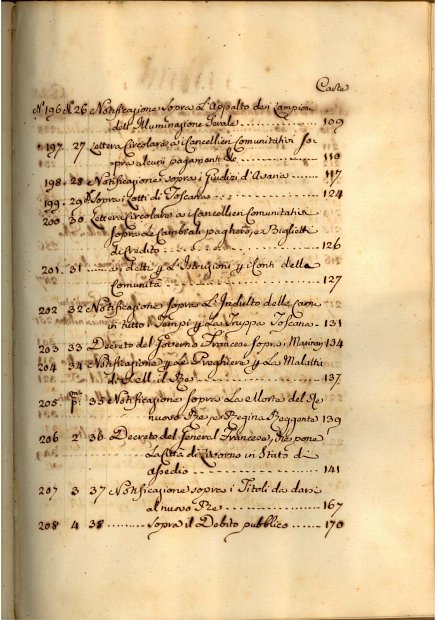 Carte
N.° 196 N. 26 Notificazione sopra l'Appalto dei Lampioni
dell'Illuminazione Serale 109
197 27 Lettera Circolare a i Cancellieri Comunitativi so-
pra alcuni pagamenti &c 110
198 28 Notificazione sopra i Giudizi d'Asania 117
199 29 Sopra i Lotti di Toscana 124
200 30 Lettera Circolare a i Cancellieri Comunitativi
sopra le Cambiali paghero, e Biglietti
di Credito 126
201 31 ai detti p l'Istruzioni p i Conti della
Comunità 127
202 32 Notificazione sopra l'Indulto della carne
in tutti i tempi p la Truppa Toscana 131
203 33 Decreto del Governo Francese sopra i Marinari 134
204 34 Notificazione p le Preghiere p la Malattia
di S. M. il Re 137
205 p.° 35 Notificazione sopra la Morte del Re
nuovo Re, e Regina Reggente 139
206 2 36 Decreto del General Francese, che pone
la Città di Livorno in Stato di
assedio 141
207 3 37 Notificazione sopra i Titoli da darsi
al nuovo Re 167
208 4 38 sopra il Debito pubblico 170